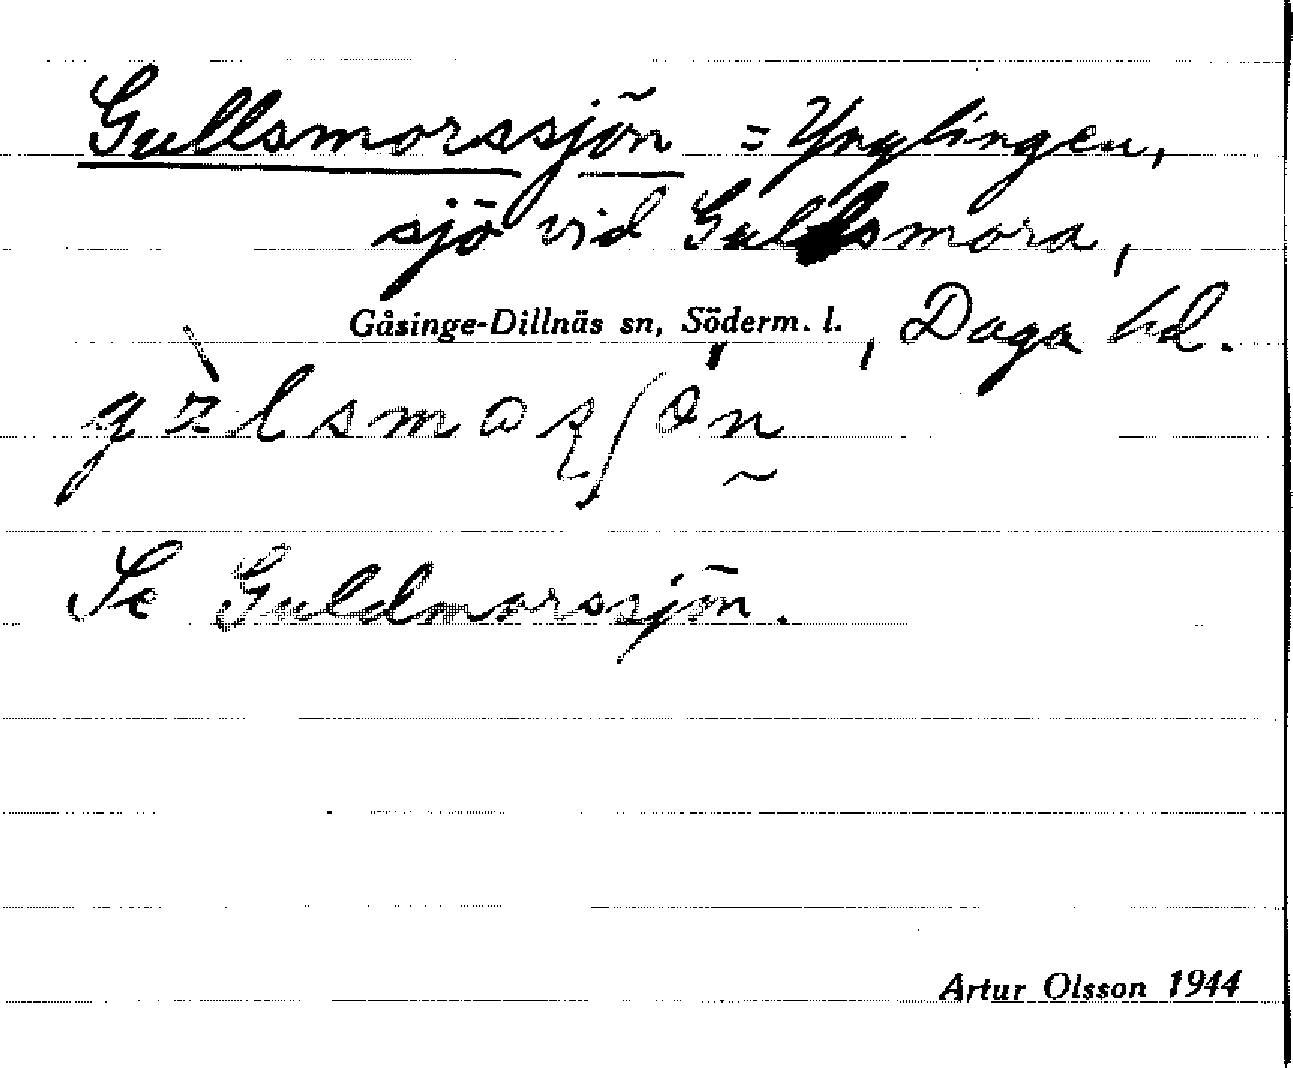 Gullsmorssjön = Ynglingen,
sjö vid Gullsmora,
Gåsinge-Dillnäs sn, Söderm. l. , Daga hd.
Se Guldmorssjön.
Artur Olsson 1944